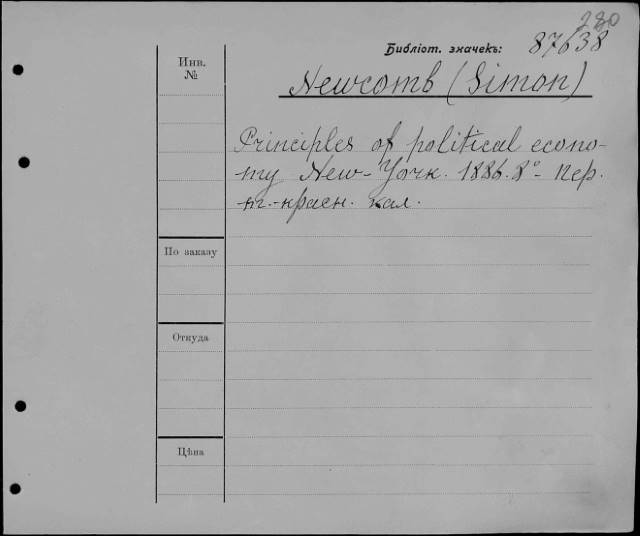 280
Библіот. значекъ: 87638
Инв.
№
Newcomb (Simon)
Principles of political econo-
my New-York. 1886. 8°- пер.
т.-красн. кал.
По заказу
Откуда
Цѣна